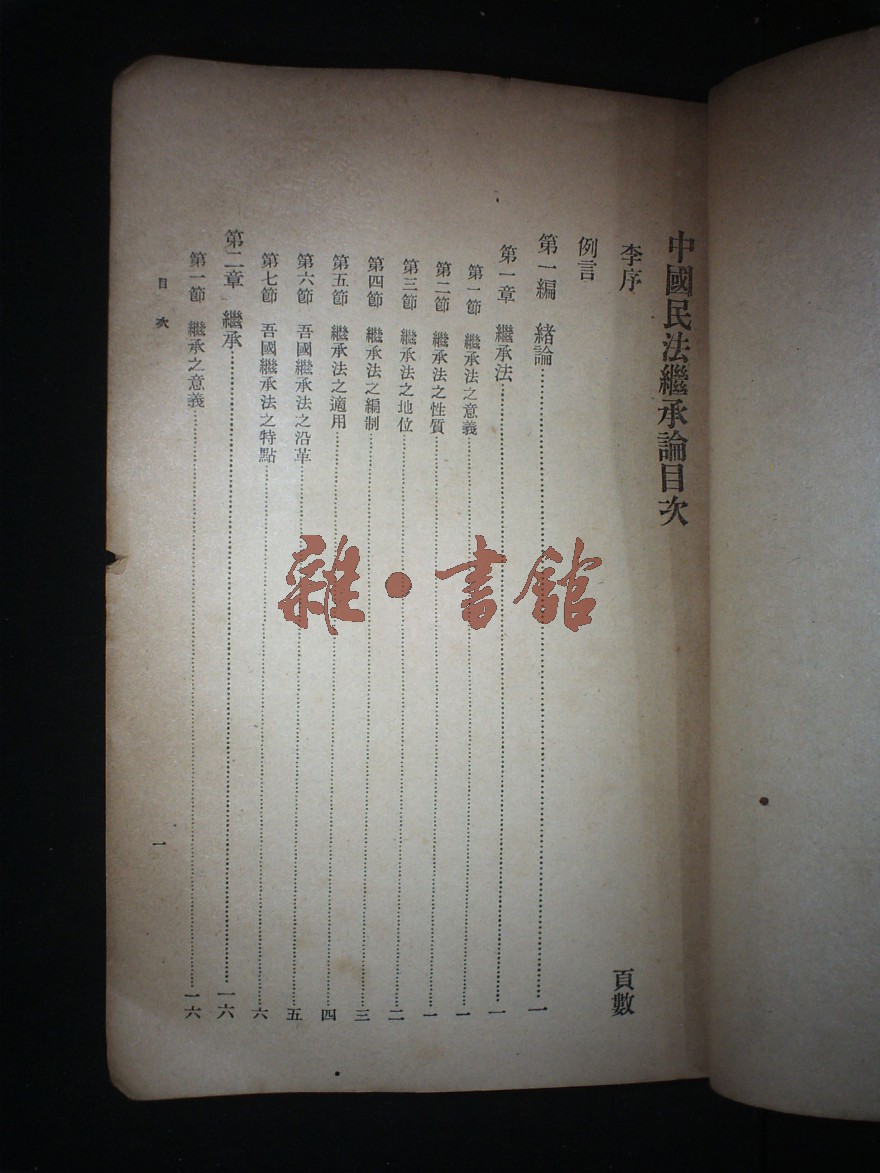 中國民法繼承論目次
李序 頁數
例言
第一編 緒論………一
第一章 繼承法………一
第一節 繼承法之意義………一
第二節 繼承法之性質………一
第三節 繼承法之地位………二
第四節 繼承法之編制………三
第五節 繼承法之適用………四
第六節 吾國繼承法之沿革………五
第七節 吾國繼承法之特點………六
第二章 繼承………一六
第一節 繼承之意義………一六
目次 一
雜·書館